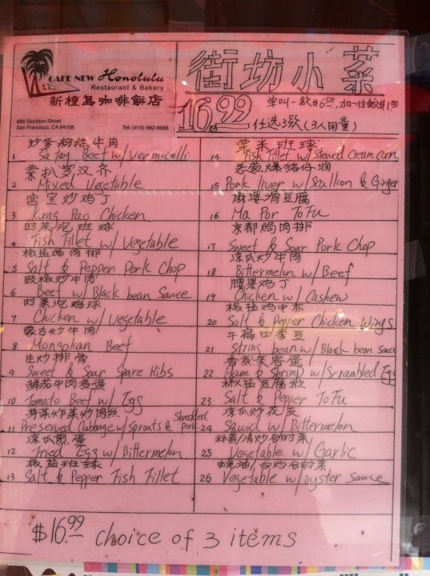 CAFE NEW Honolulu
Restaurant & Bakery
新檀島咖啡餅店
888 Stockton Street
San Francisco, CA 94108
Tel: (415)
街坊小菜
單叫一款$6.50
16.99 任選3款(3人份量)
1 Sa Tay Beef w/ Vermicelli
2 Mixed Vegetable
宮宝炒鸡丁
3 Kung Pao Chicken
4 Fish Fillet w/ Vegetable
椒盐焗肉排
5 Salt & Pepper Pork Chop
豉椒炒牛肉
6 Beef w/ Black bean Sauce
7 Chicken w/ Vegetable
蒙古炒牛肉
8 Mongolian Beef
生炒排骨
9 Sweet & Sour Spare Ribs
10 Tomato Beef w/ Egg
11 Preserved Cabbage w/ Sprouts & Shredded Pork
凉瓜煎蛋
12 Fried Egg w/ Bittermelon
椒盐班球
13 Salt & Pepper Fish Fillet
粟米班球
14 Fish Fillet w/ Stewed Cream Corn
15 Pork liver w/ Scallion & Ginger
麻婆滑豆腐
16 Ma Por ToFu
京都焗肉排
17 Sweet & Sour Pork Chop
凉瓜炒牛肉
18 Bittermelon w/ Beef
腰果鸡丁
19 Chicken w/ Cashew
20 Salt & Pepper Chicken Wings
21 String bean w/ Black bean Sauce
22 Ham & Shrimp w/ Scrambled Egg
椒盐豆腐粒
23 Salt & Pepper ToFu
24 Squid w/ Bittermelon
25 Vegetable w/ Garlic
26 Vegetable w/ oyster sauce
$16.99 choice of 3 items